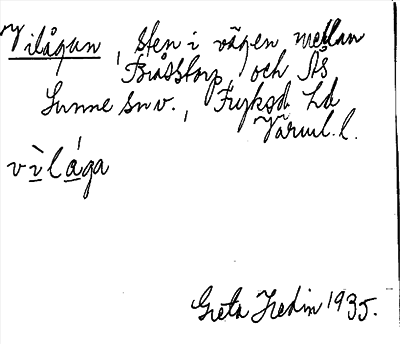 Vilågan, sten i vägen mellan
Bråstorp och Ås
Sunne sn v., Fryksd. hd
Värml. l.
vìlåga
Greta Hedin 1935.